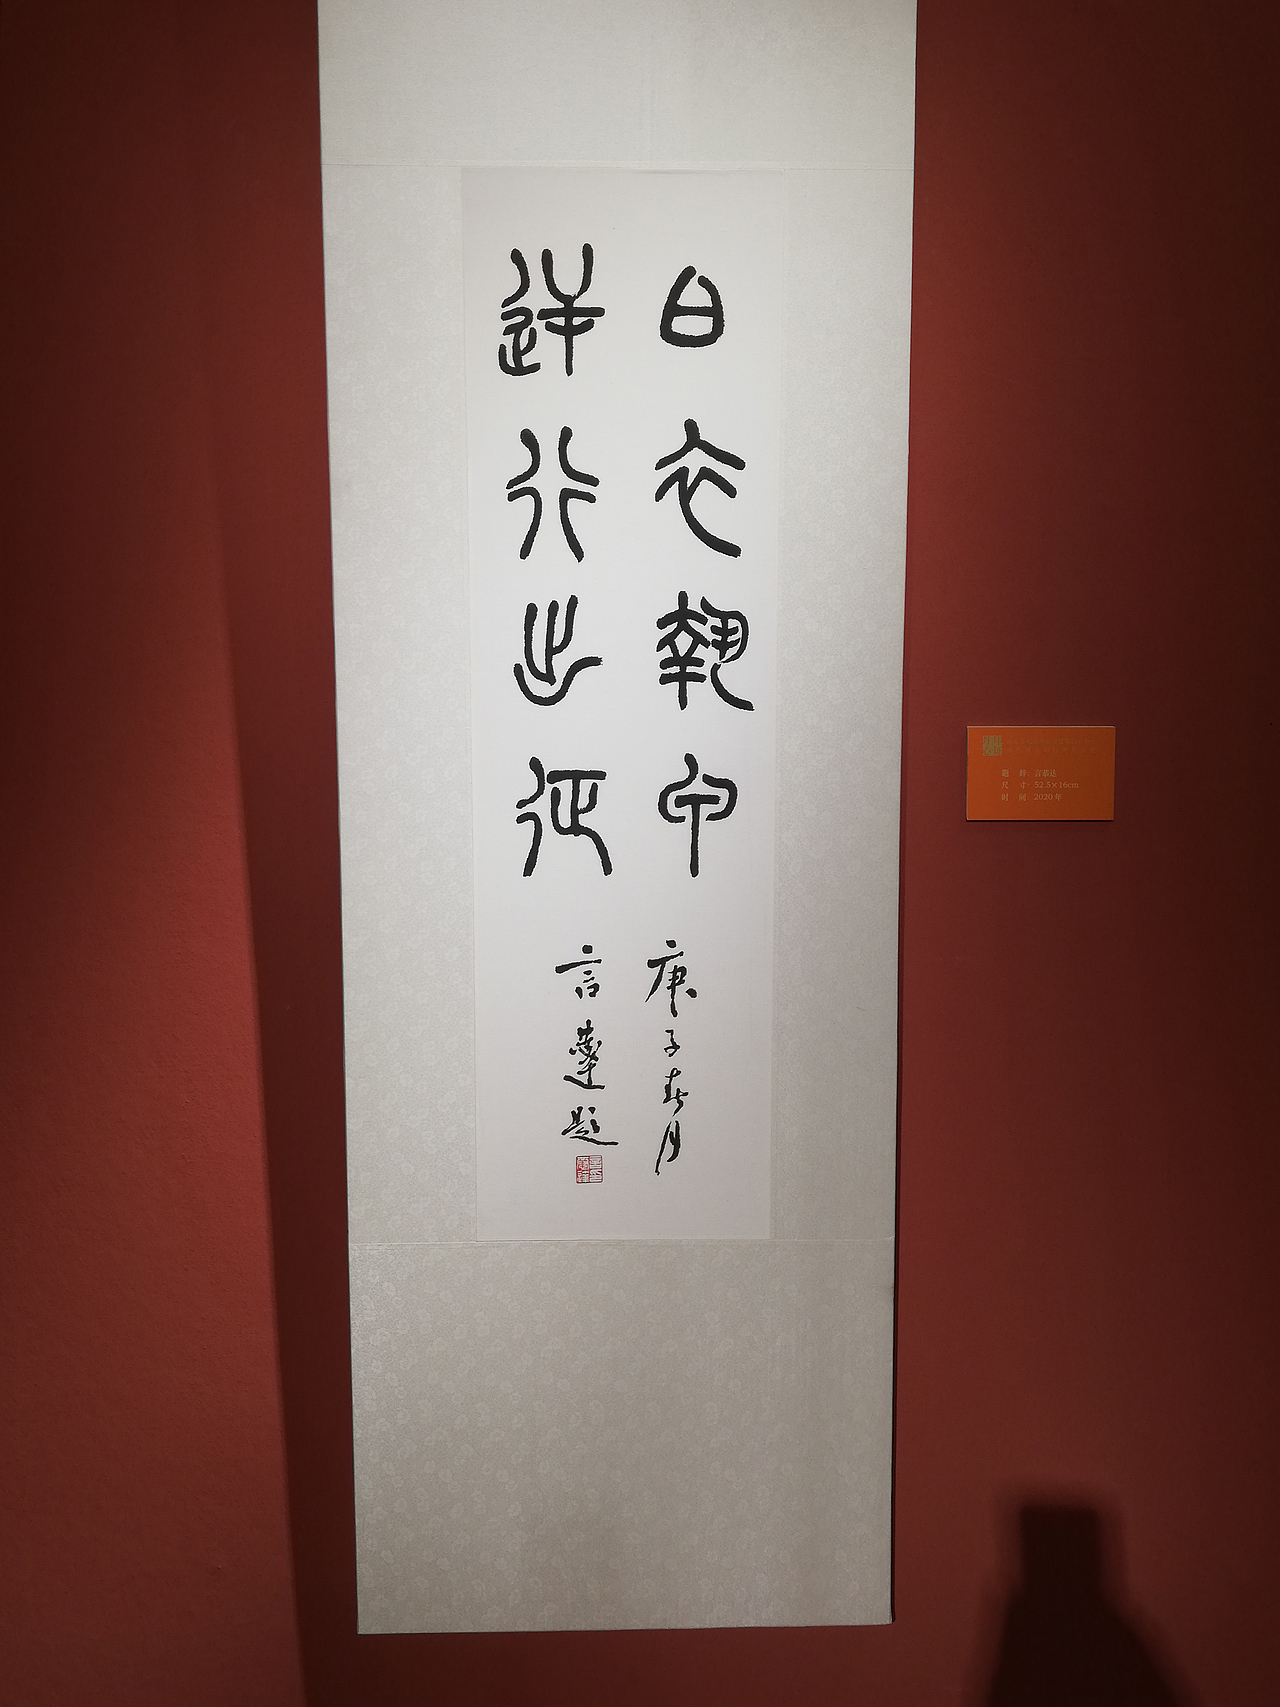 白衣執甲
逆行出征
庚子春月
言恭達題
言恭达
尺 寸：52.5×16cm
时 间：2020 年